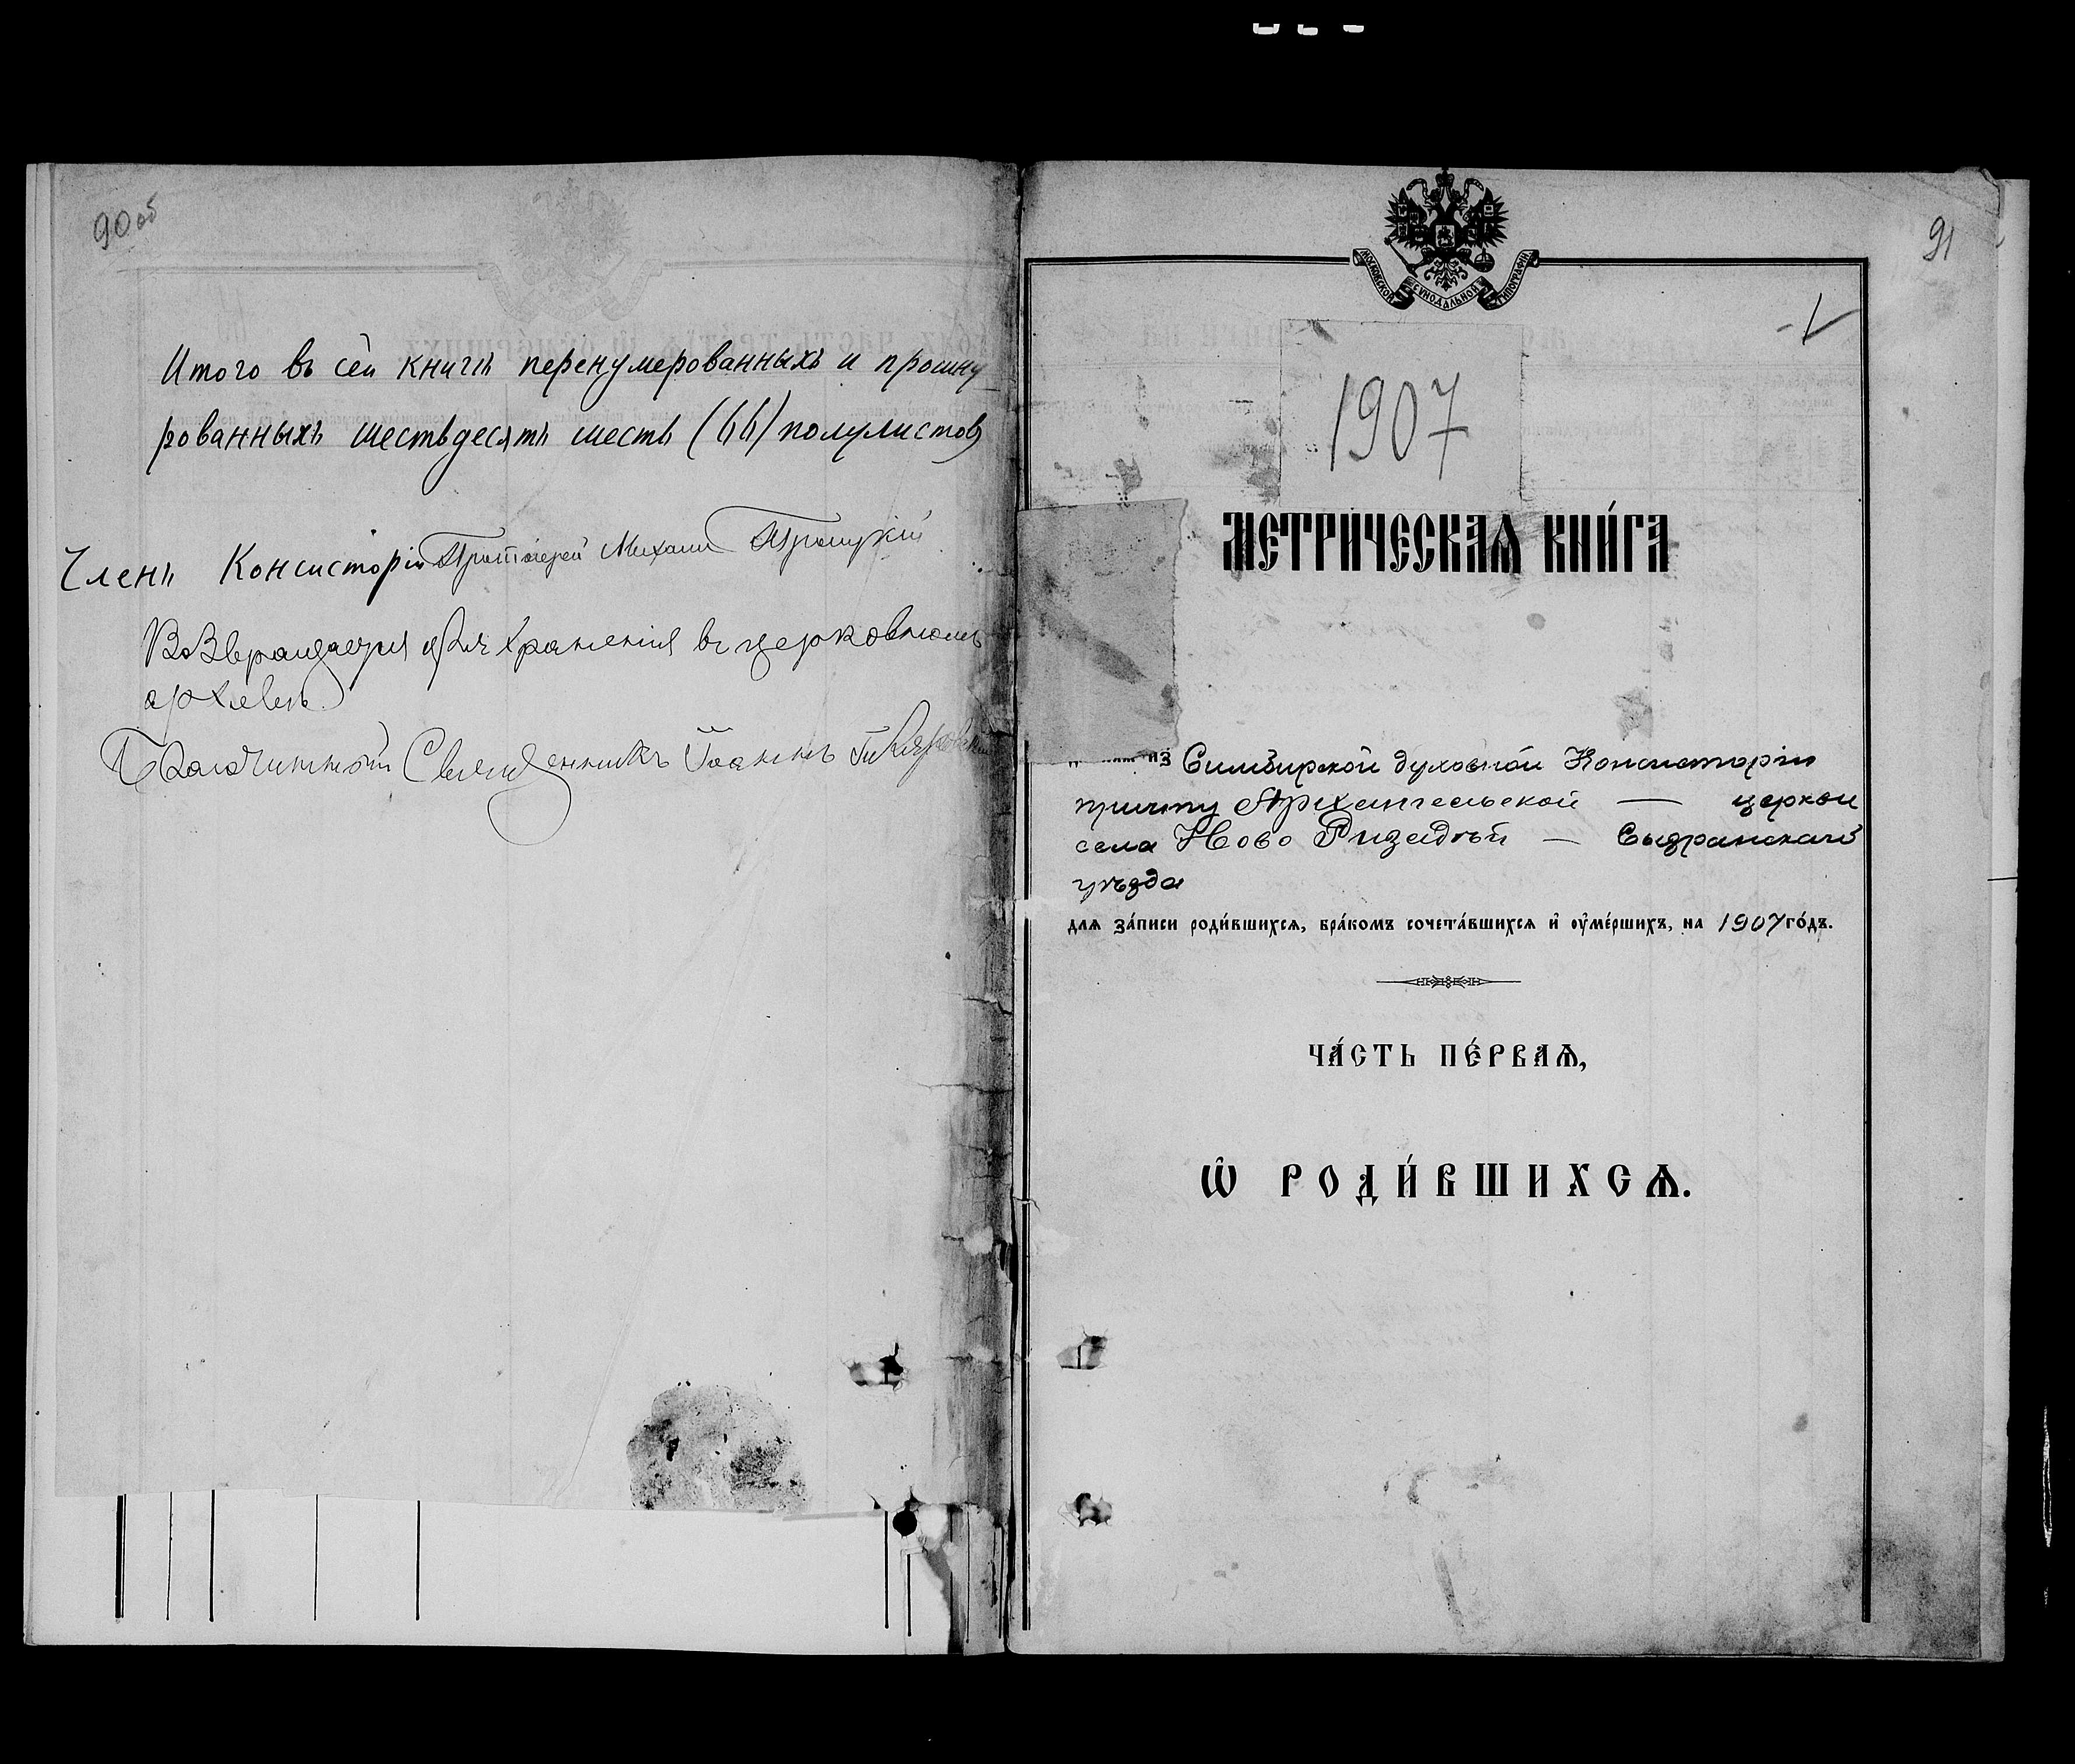 90 об
Итого въ сей книгѣ перенумерованныхъ и прошну
рованныхъ шестьдесятъ шесть (66) полулистовъ
Членъ Консисторіи Протоіерей Михаилъ Троицкій
Возвращается для хранения въ церковномъ
архивѣ
Благочинный Священникъ Іоаннъ
91
МОСКОВСКОЙ СѴНОДАЛЬНОЙ ТИПОГРАФІИ
1907
МЕТРИ́ЧЕСКАѦ КНИ́ГА
из Симбирской духовной Консисторіи
причту Архангельской — церкви
села Ново Ризадѣй — Сызранскаго
уѣзда
длѧ за́писи роди́вшихсѧ, бра́комъ сочета́вшихсѧ и҆ оу҆ме́ршихъ, на 1907 го́дъ.
ЧА́СТЬ ПЕ́РВАѦ,
Ѡ҆ РОДИ́ВШИХСѦ.